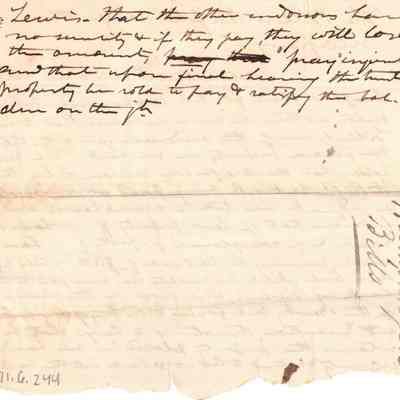 Lewis. That the other endorsers have
no security & if they pay, they will lose
the amount, pray that "pray injun
and that upon final hearing the trust
property be sold to pay & satisfy the bal.
due on the jt.
Bills
71.6.244